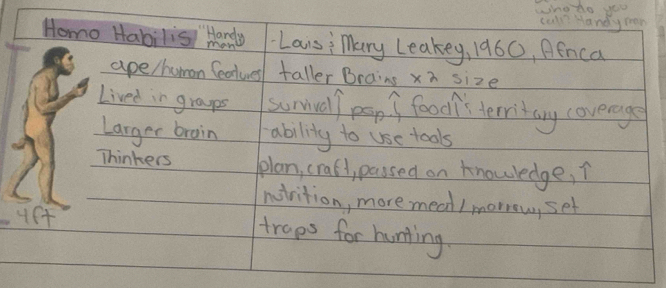 who do you
call? Handy men
Homo Habilis "Handy men"
ape/human features
Lived in groups
Larger brain
Thinkers
4ft
- Louis & Mary Leakey, 1960, Africa
taller Brains x2 size
survival↑ pop↑, food↑ & territory coverage
-ability to use tools
plan, craft, passed on knowledge, ↑
nutrition, more meat/marrow, set
traps for hunting.